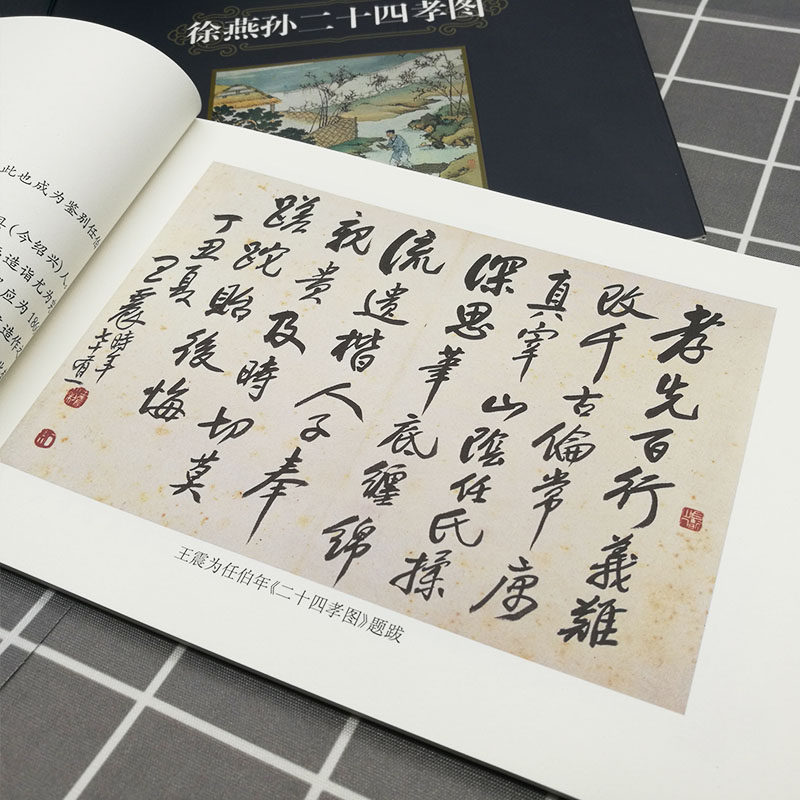 徐燕孙二十四孝图
此也成为鉴别任伯
(今绍兴)人
造诣尤为
应为18
造作
孝先百行義難
改千古倫常庸
真宰山陰任氏揉
深思筆底纏綿
流遺楷人子奉
親貴及時切莫
蹉跎貽後悔
丁丑夏
王震時年七十有一
王震为任伯年《二十四孝图》题跋